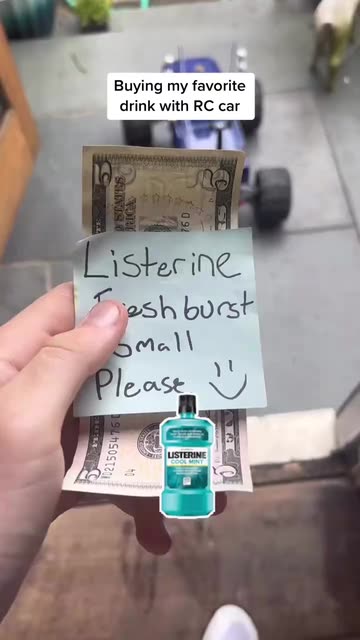 Buying my favorite
drink with RC car
5
5
Listerine
Freshburst
Small
Please
LISTERINE
COOL MINT
5